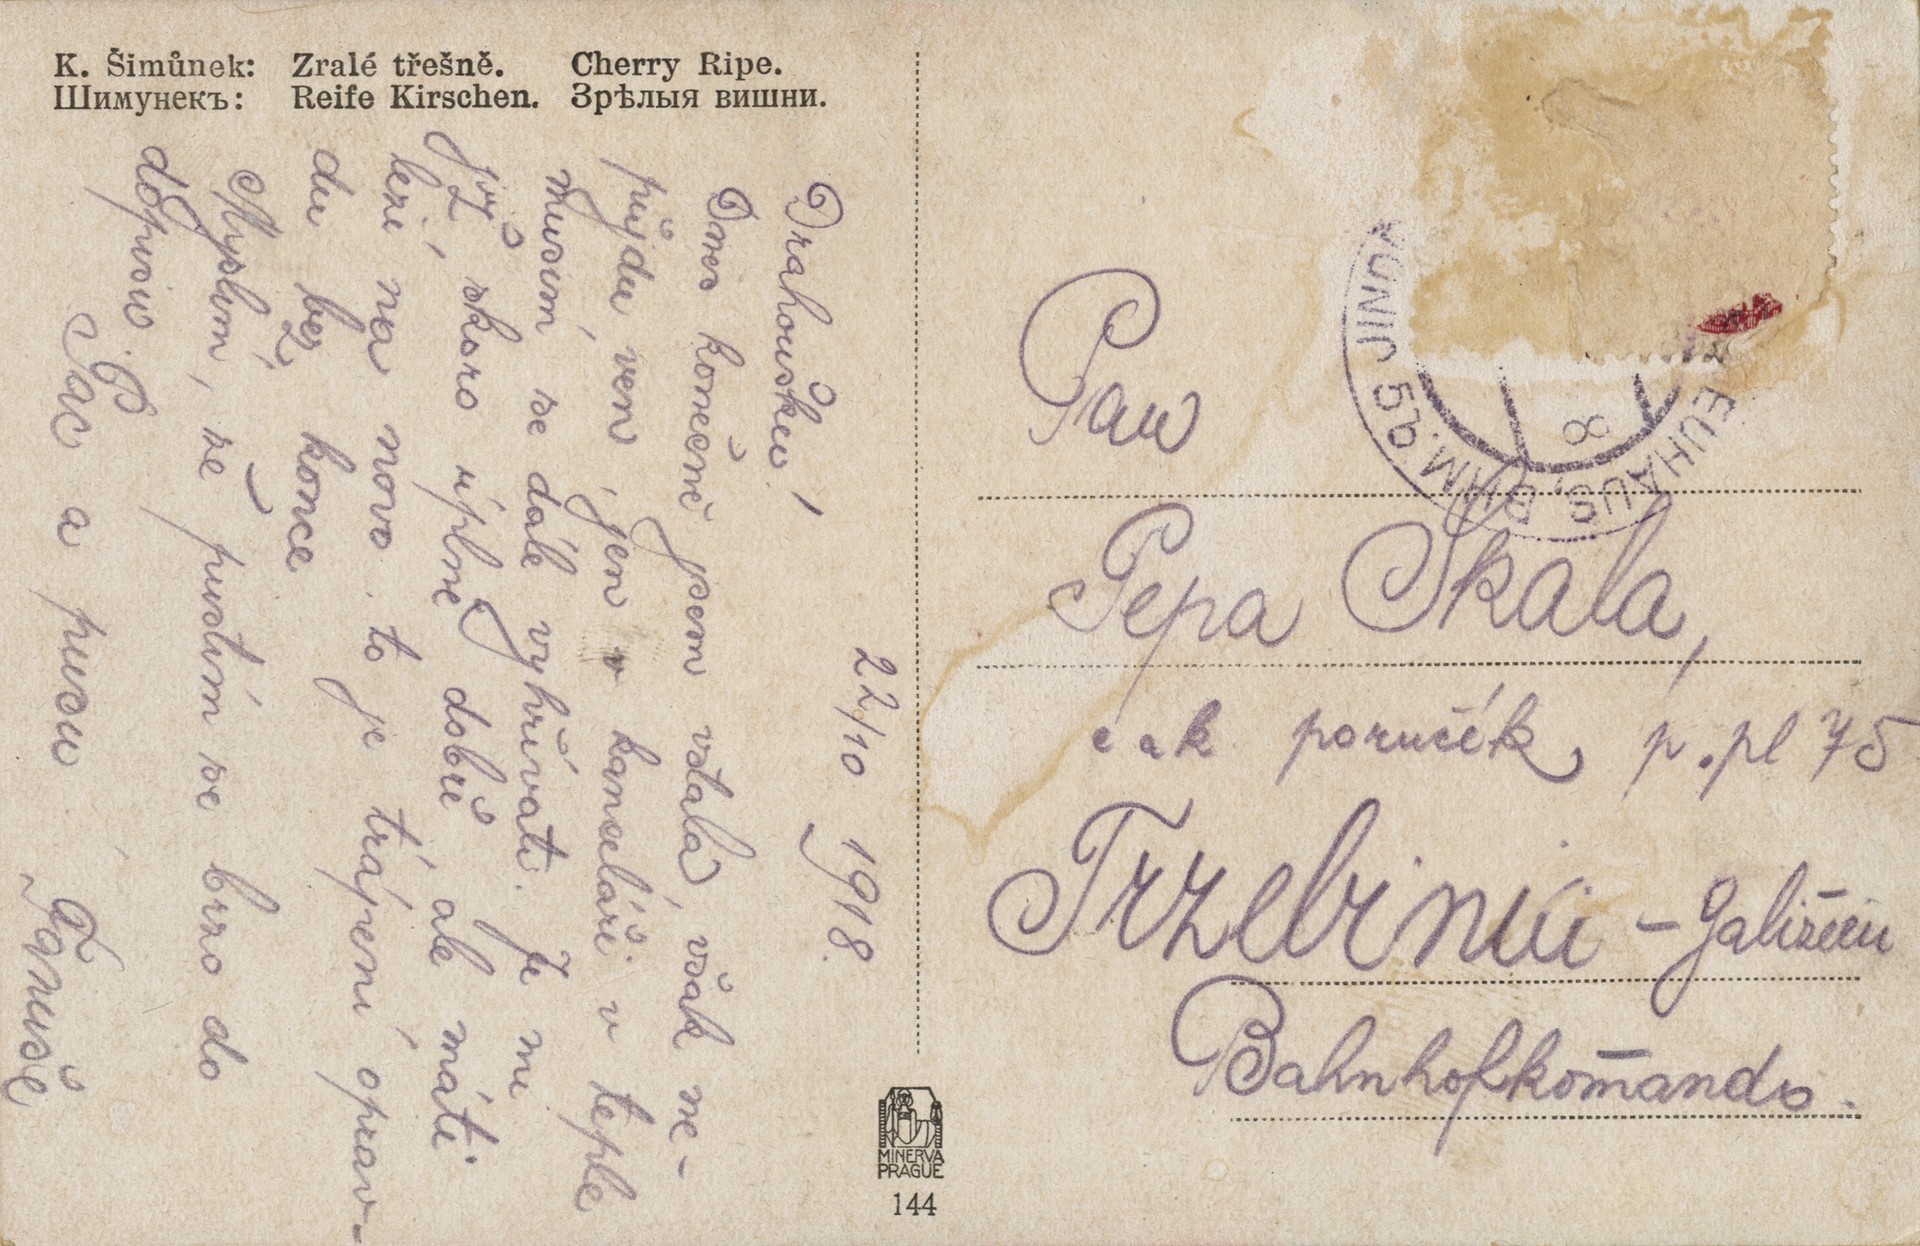 K. Šimůnek: Zralé třešně. Cherry Ripe.
Шимунекъ: Reife Kirschen. Зрѣлыя вишни.
22/10 1918.
Drahoušku!
Dnes konečně jsem vstala, však ne-
půjdu ven, jen v kanceláři v teple
musím se dále vyhřívati. Je mi
již skoro úplně dobře, ale máti
leží na novo. to je trápení oprav-
du bez konce
Myslím, že pustím se brzo do
dopisu. P
Pac a pusu
Fanuše
Pan
Pepa Skala,
c a k poručík p. pl 75
Trzebinia - Galizien
Bahnhofkom̄ando.
EUHAUS, BÖHM.
JIND
8
MINERVA
PRAGUE
144